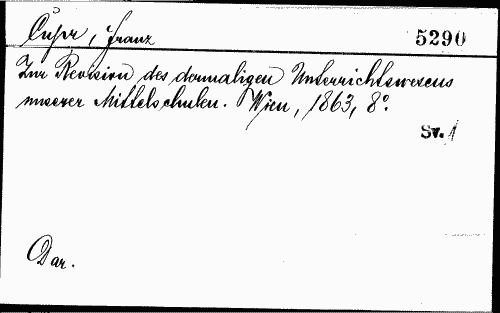 Čupr, Franz
5290
Zur Revision des dermaligen Unterrichtswesens
unserer Mittelschulen. Wien, 1863, 8º.
Sv. 1
Dar.